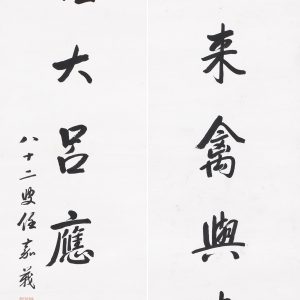 来禽與
大呂應
八十二叟任嘉義